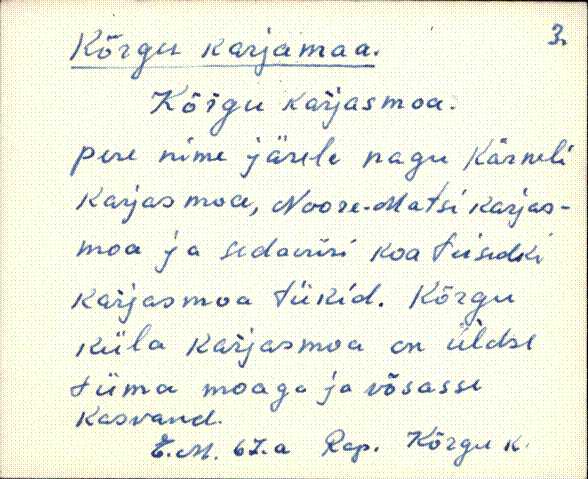 3.
Kõrgu karjamaa.
Kõrgu karjasmoa.
pere nime järele nagu Kärneli
karjasmoa, Noore-Matsi karjas-
moa ja sedaviisi koa teisedki
karjasmoa tükid. Kõrgu
küla karjasmoa on üldse
tüma moaga ja võsasse
kasvand.
E.M. 67.a Rap. Kõrgu k.